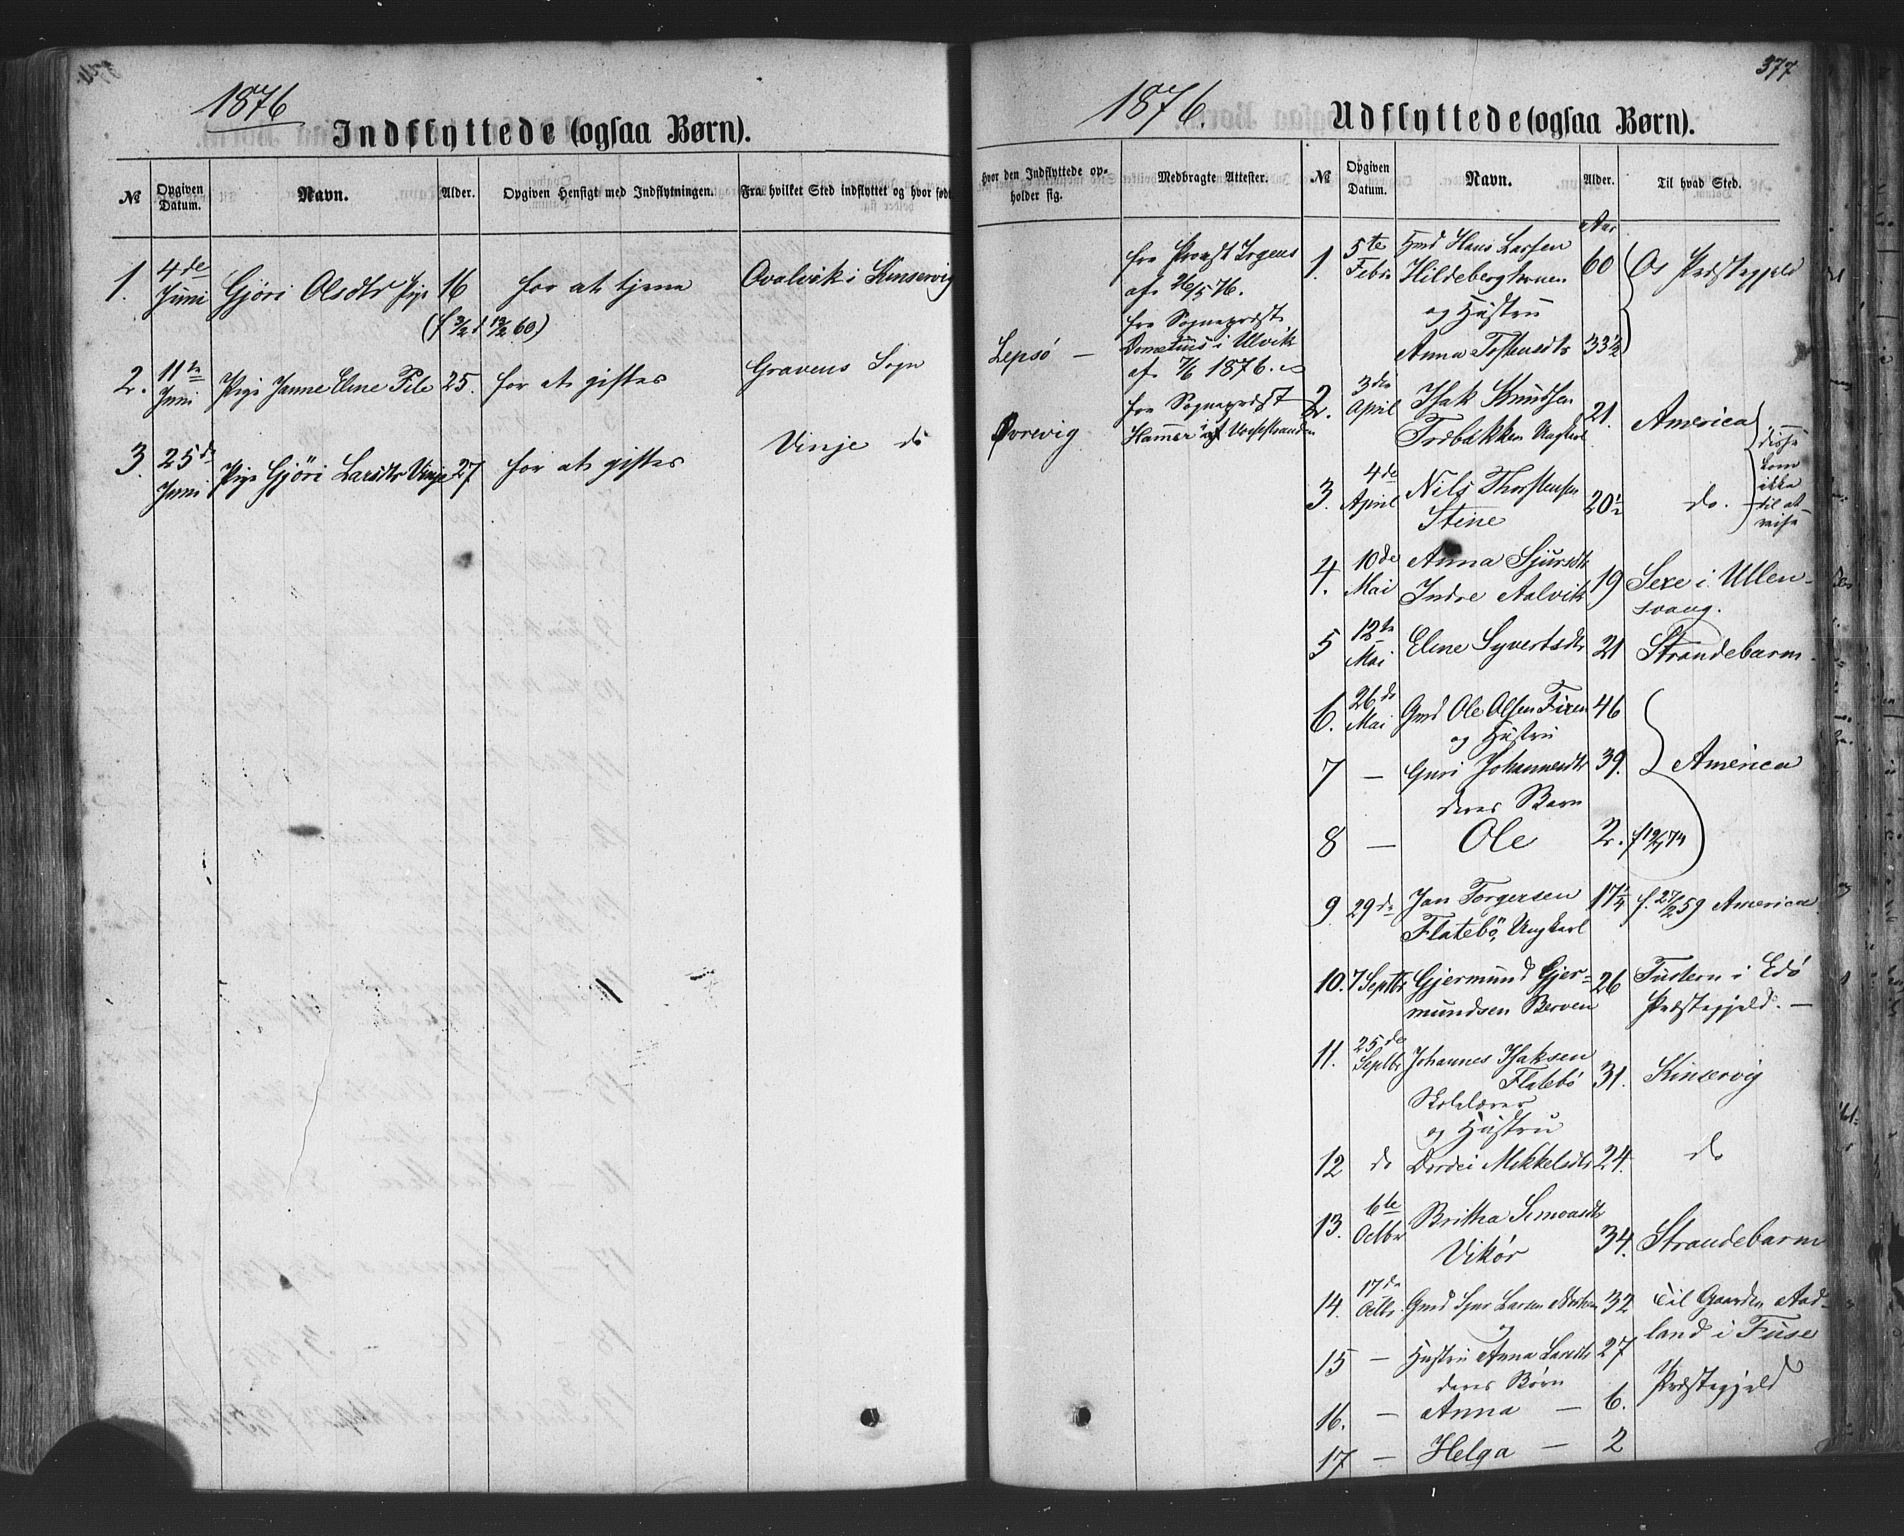 1876
Indflyttede (ogsaa Børn).
№
Opgiven Datum.
Navn.
Alder.
Opgiven Hensigt med Indflytningen.
Fra hvilket Sted indflyttet og hvor født
1. 4de Juni Gjøri Olsdtr Pige 16 for at tjene
2. 11te Juni Pige Janne Elene Pile 25. for at giftes Gravens Sogn
3. 25de Juni Pige Gjøri Larsdtr Vinje 27 for at giftes Vinje do
377
1876.
Udflyttede (ogsaa Børn).
hvor den Indflyttede opholder sig.
Medbragte Attester.
№
Opgiven Datum.
Navn.
Alder.
Til hvad Sted.
fra Provst Irgens
af 26/5 76.
Lepsø —
fra Sognepræst
i Ulvik
af 7/6 1876.
Øvrevig
fra Sognepræst
Aar
1. 5te Febr Gmd Hans Larsen 60 Os Præstegjeld
og Hustru
Anna 33½
2. 3die April Isak Knudsen 21. America
Ungkarl
disse kom ikke til at reise
3. 4de April Nils Thorstensen 20½ do.
Stine
4. 10de Mai Anna Sjursdtr 19 Sexe i Ullen-
Indre Aalvik svang.
5 12te Mai Elene Syvertsdtr 21 Strandebarm.
6. 26de Mai Gmd Ole Olsen Fixen 46
og Hustru
7 — Guri Johannesdtr 39. America
deres Barn
8 — Ole 2.
9 29de Jon Torgersen 17¼ f. 27/2 59 America
Flatebö, Ungkarl
10. 7 Septbr Gjermund Gjer- 26 Tustern i Edö
mundsen Berven Præstegjeld. —
11. 25de Septbr Johannes Isaksen
Flatebö 31. Kinservig
Skolelærer
og Hustru
12 do Dordei Mikkelsdtr 24. do
13. 6te Octbr Britha Simonsdtr
Vikör 34. Strandebarm
14. 17de Octbr. Gmd Sjur Larsen 32 til Gaarden Aad-
og land i Fuse
15 — Hustru Anna Larsdtr 27 Præstegjeld
deres Børn
16. — Anna — 6.
17 — Helga — 2